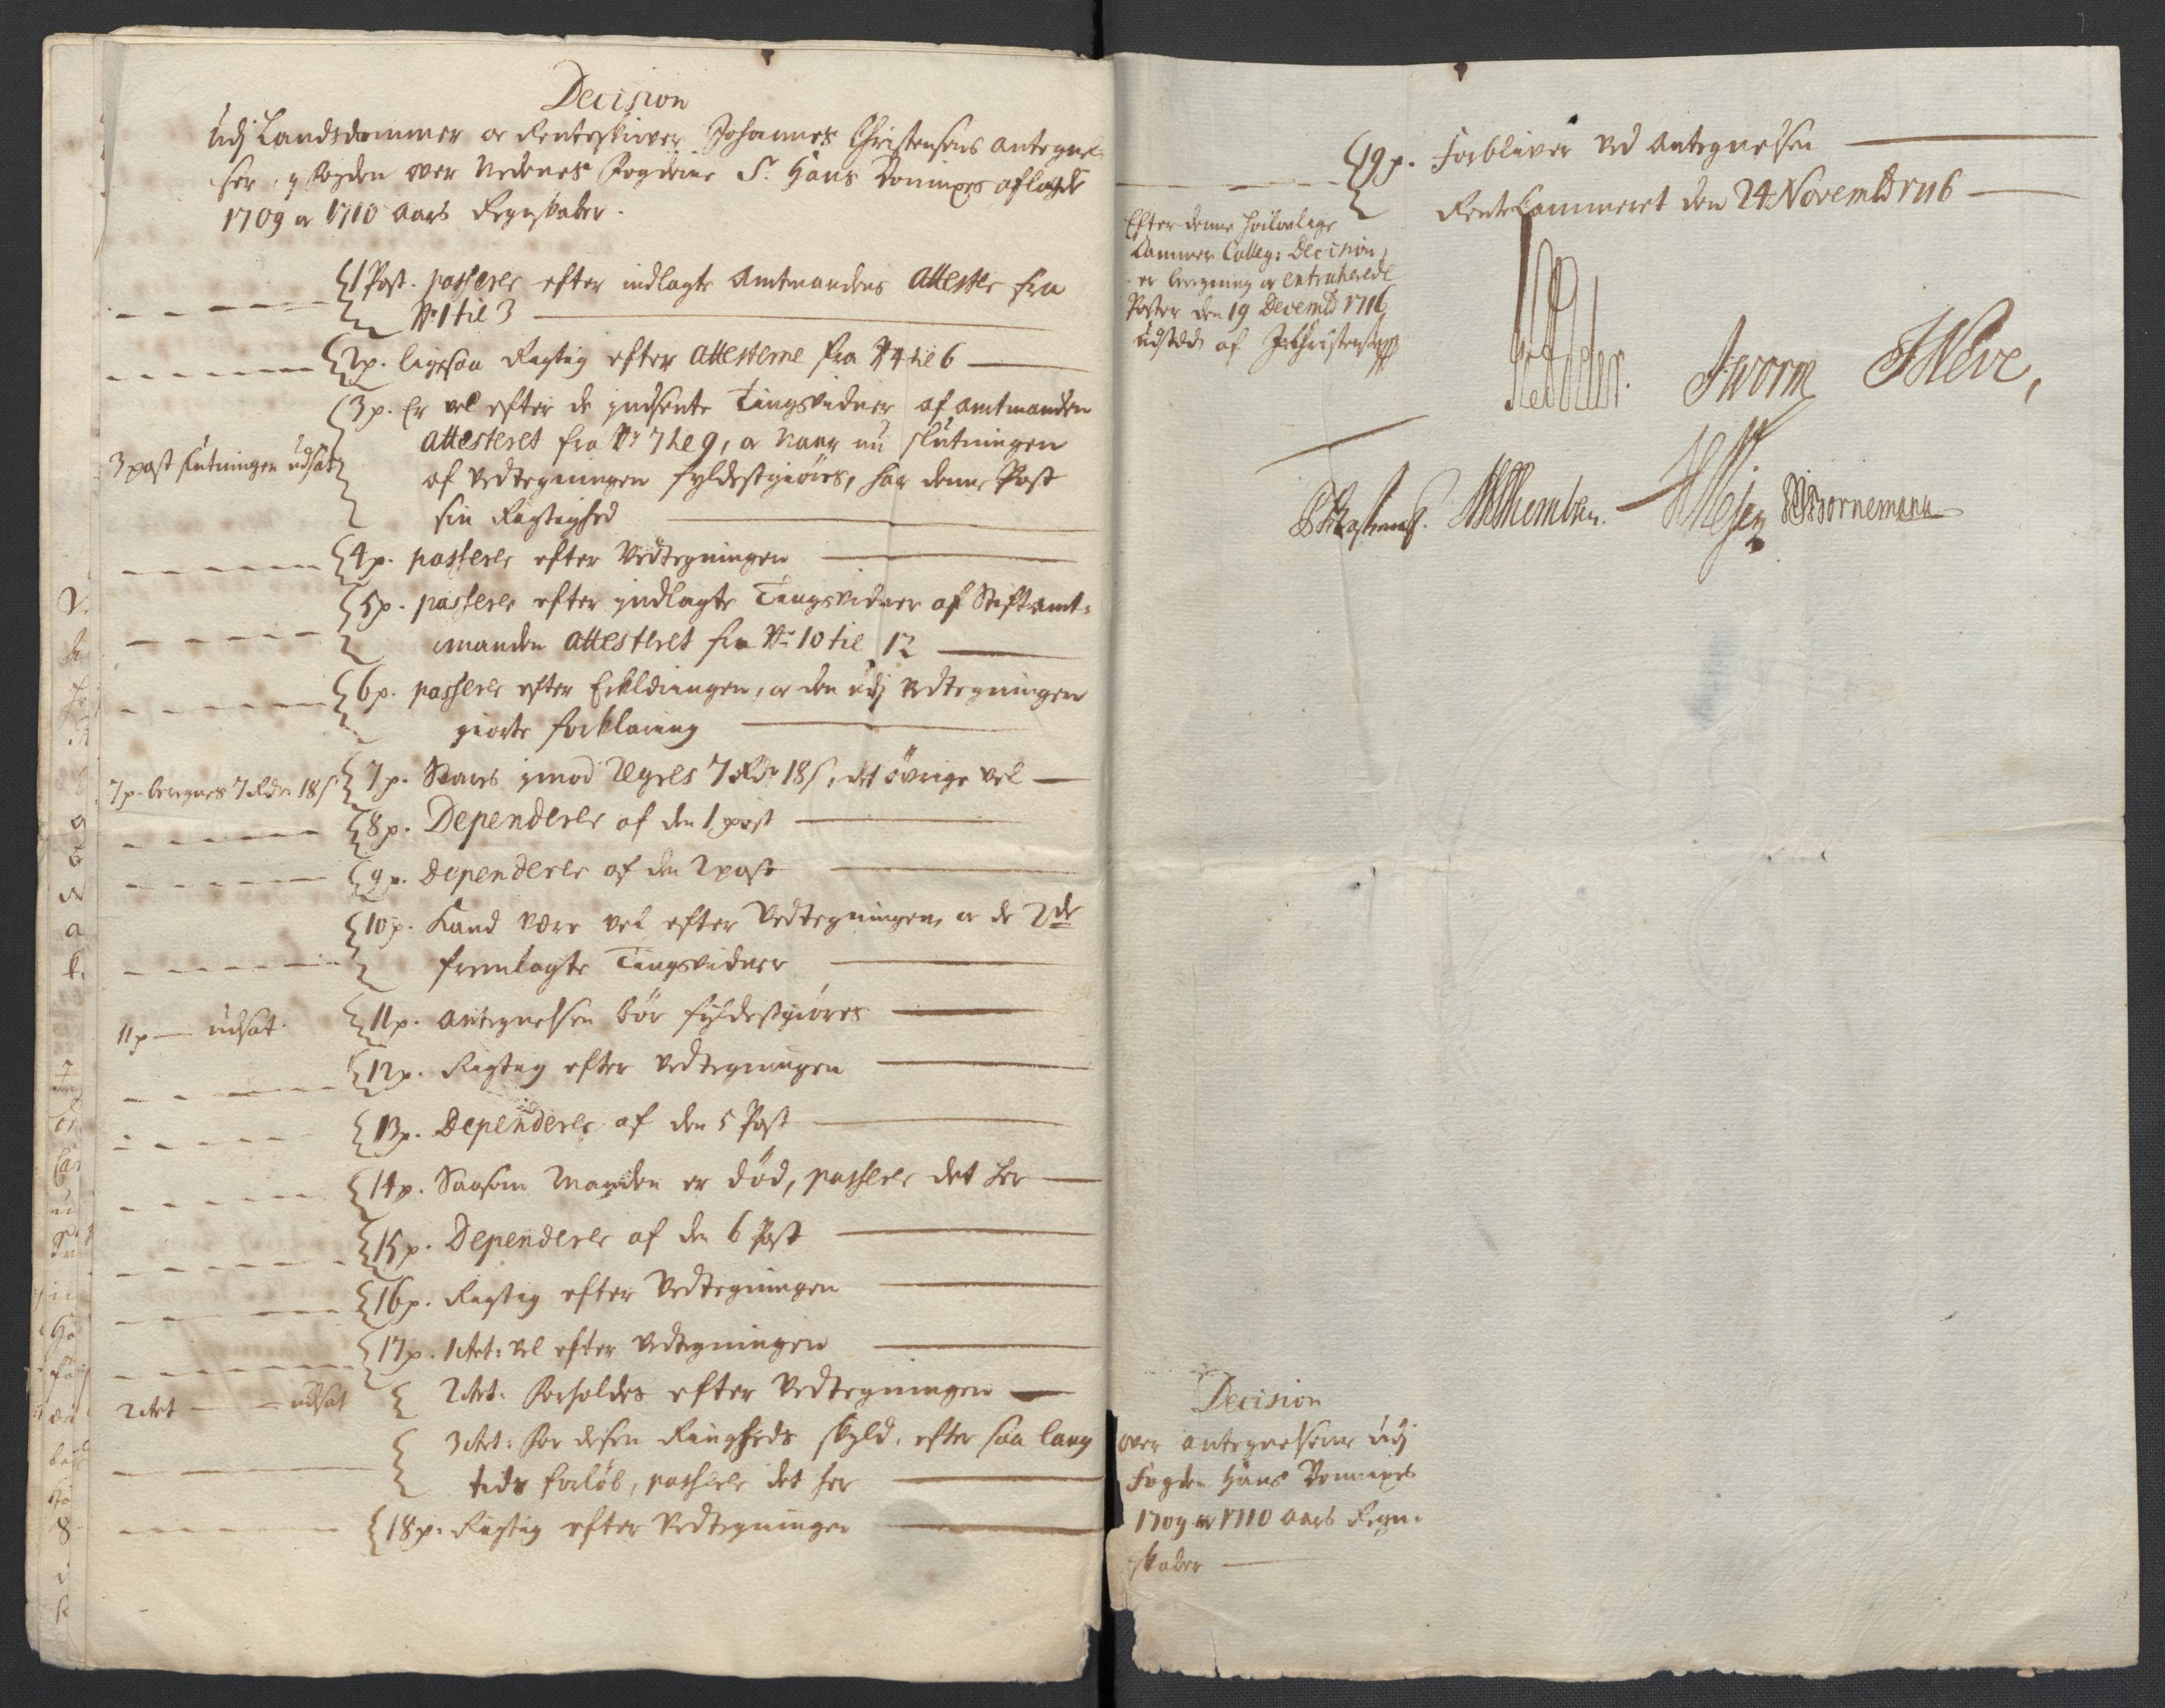 Decision
Udj Landsdommer oc Renteskriver Johannes Christensens Antegnel-
ser, j Fogden over Nedenes Fogderie Sr. Hans aflagde
1709 oc 1710 Aars Regnskaber.
1 Post. passerer efter indlagte Amtmandens Attester fra
No 1 til 3
2 p. ligesaa Rigtig efter Attesterne fra No 4 til 6
3 p. Er vel efter de jndsente Tingsvidner af Amtmanden
3 post slutningen udsat
Attesteret fra No 7 til 9, oc Naar nu slutningen
af Vedtegningen fyldestgiøres, har denne Post
sin Rigtighed
4 p. passerer efter Vedtegningen
5 p. passerer efter jndlagte Tingsvidner af Stiftamt-
manden Attesteret fra No 10 til 12
6 p. passerer efter Erklæringen, oc den udj Vedtegningen
giorte forklaring
7 p. beregnes 7 Rdr 18 s
7 p. Svares jmod 7 Rdr 18 s, det øvrige vel
8 p. Dependerer af den 1 post
9 p. Dependerer af den 2 post
10 p. Kand være vel efter Vedtegningen oc de 2de
fremlagte Tingsvidner
11 p udsat
11 p. Antegnelsen bør fyldestgiøres
12 p. Rigtig efter Vedtegningen
13 p. Dependerer af den 5 Post
14 p. Saasom Manden er død, passerer det her
15 p. Dependerer af den 6 Post
16 p. Rigtig efter Vedtegningen
17 p. 1 Art: vel efter Vedtegningen
2 Art udsat
2 Art: Forholdes efter Vedtegningen
3 Art: For desen Ringheds skyld, efter saa lang
tids forløb, passerer det her
18 p. Rigtig efter Vedtegningen
19 p. Forbliver ved Antegnelsen
Rente Cammeret den 24 Novembr 1716
Efter denne høilovlige
Cammer Colleg: Decision,
er beregning oc extraherede
Poster den 19 Decembr 1716
udstæd af JChristensen
JWorm
Bornemann
Decision
over Antegnelserne udj
Fogden Hans
1709 oc 1710 Aars Regn-
skaber